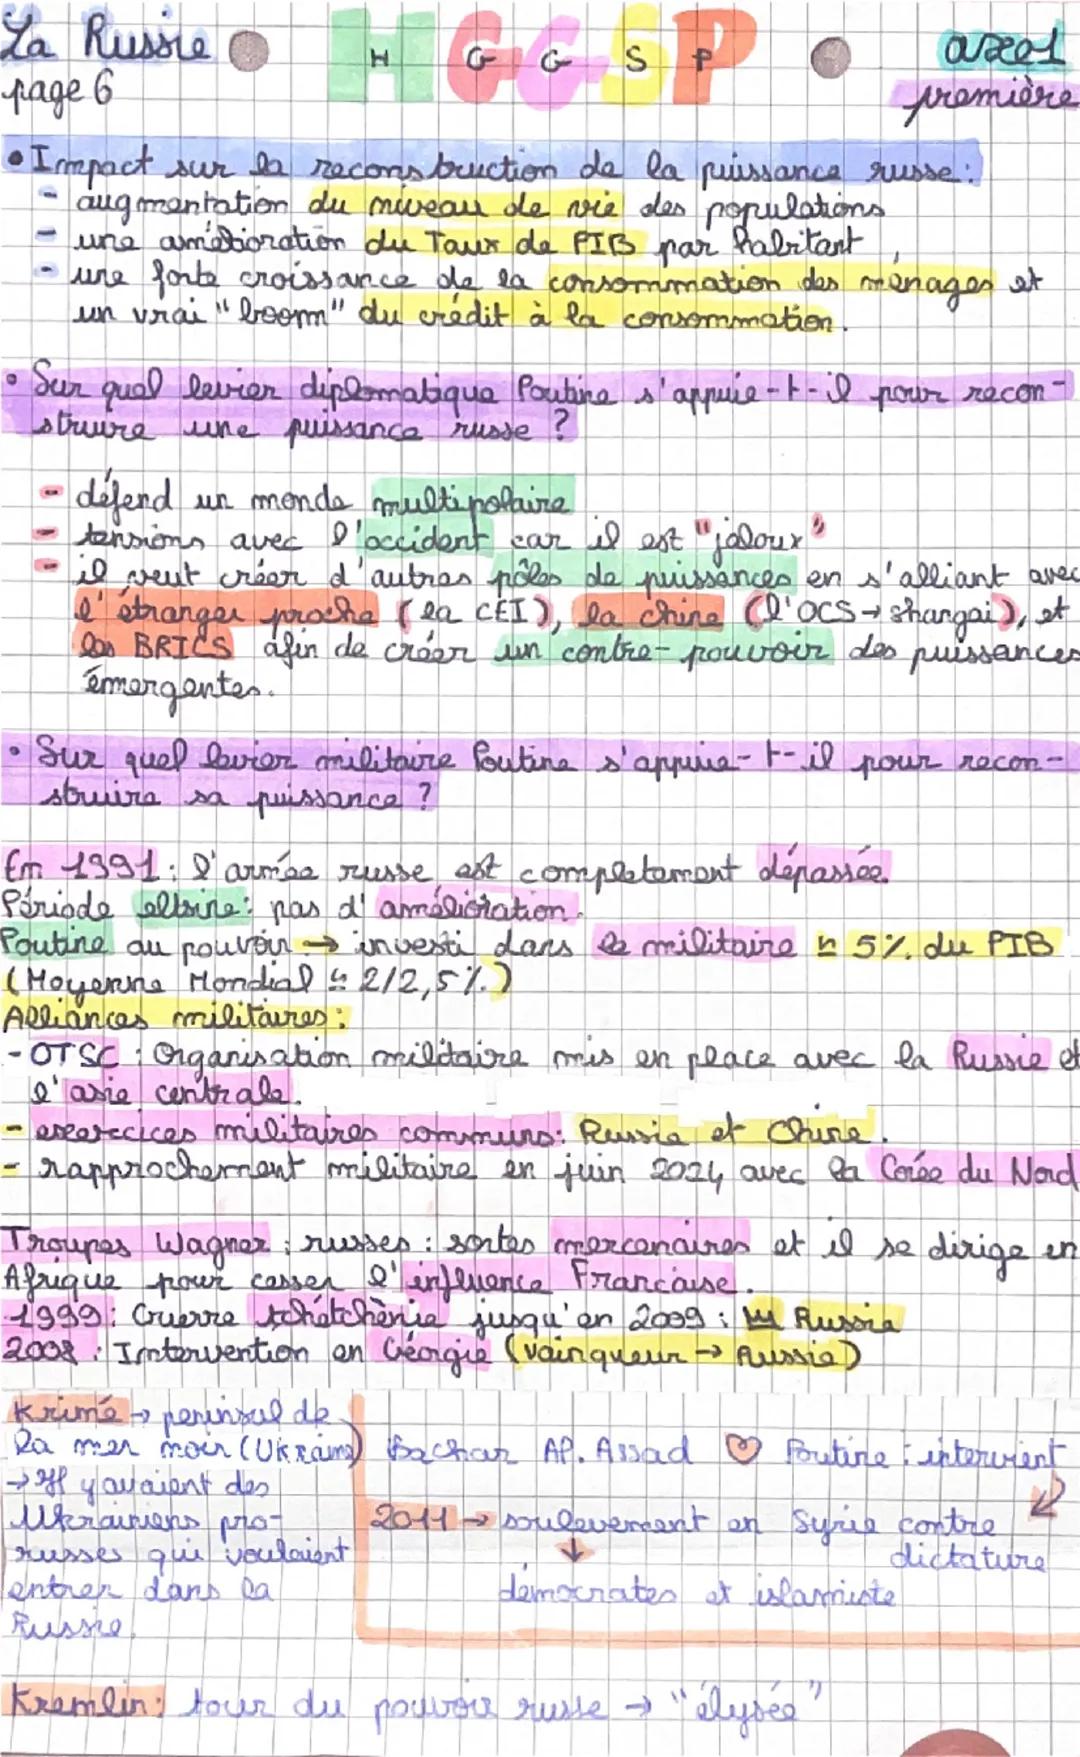 La Russie
page 6
H G G S P
axe 1
première
• Impact sur la reconstruction de la puissance russe :
- augmentation du niveau de vie des populations
- une amélioration du Taux de PIB par habitant
- une forte croissance de la consommation des ménages et
un vrai "boom" du crédit à la consommation.
• Sur quel levier diplomatique Poutine s'appuie-t-il pour recon-
struire une puissance russe ?
- défend un monde multipolaire
- tensions avec l'occident car il est "jaloux"
- il veut créer d'autres pôles de puissances en s'alliant avec
l'étranger proche (la CEI), la chine (l'OCS → shangai), et
les BRICS afin de créer un contre-pouvoir des puissances
émergentes.
• Sur quel levier militaire Poutine s'appuie-t-il pour recon-
struire sa puissance ?
En 1991 : l'armée russe est completement dépassée.
Période eltsine : pas d'amélioration.
Poutine au pouvoir → investi dans le militaire ≃ 5% du PIB
(Moyenne Mondial ≃ 2/2,5%.)
Alliances militaires :
- OTSC : Organisation militaire mis en place avec la Russie et
l'asie centrale.
- exercices militaires communs : Russia et Chine.
- rapprochement militaire en juin 2024 avec la Corée du Nord
Troupes Wagner ; russes : sortes mercenaires et il se dirige en
Afrique pour casser l'influence Francaise.
1999 : Guerre tchétchènie jusqu'en 2009 : Russia
2008 : Intervention en Géorgie (vainqueur → Russie)
Krimé → peninsul de
la mer noir (Ukraine)
→ Il y avaient des
Ukrainiens pro-
russes qui voulaient
entrer dans la
Russie.
Bachar Al. Assad ♡ Poutine : intervient
2011 → soulevement en Syrie contre
dictature
↓
démocrates et islamiste
Kremlin : tour du pouvoir russe → "élysée"